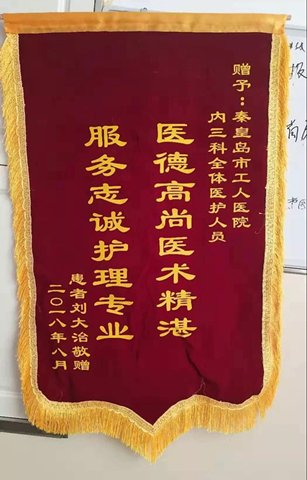 赠予：秦皇岛市工人医院
内三科全体医护人员
医德高尚医术精湛
服务志诚护理专业
患者刘大治敬赠
二〇一八年八月